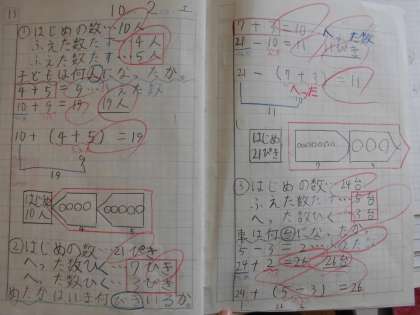 ① はじめの数…10人
ふえた数たす…4人
ふえた数たす…5人
子どもは何人になったか。
4+5=9…ふえた数
10+9=19 19人
10+(4+5)=19
9
19
はじめ
10人
② はじめの数…21ぴき
へった数ひく…7ひき
へった数ひく…3びき
めだかはいま何びきいるか
7+3=10…へった数
21-10=11 11ぴき
21-(7+3)=11
へった
10
11
はじめ
21ぴき
③ はじめの数…24台
ふえた数たす…5台
へった数ひく…3台
車は何台になったか。
5-3=2
24+2=26 26台
24+(5-3)=26